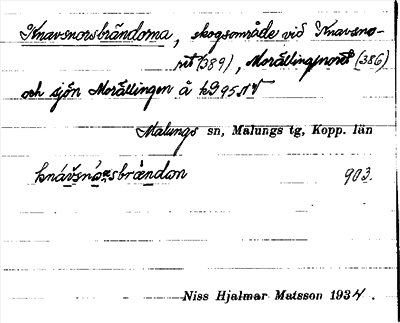 Knavsnorsbrändorna, skogsområde vid Knavsno-
ret (389), Morällingsnoret (386)
och sjön Morällingen å kg 95 NV
Malungs sn, Malungs tg, Kopp. län
903.
Niss Hjalmar Matsson 1934.